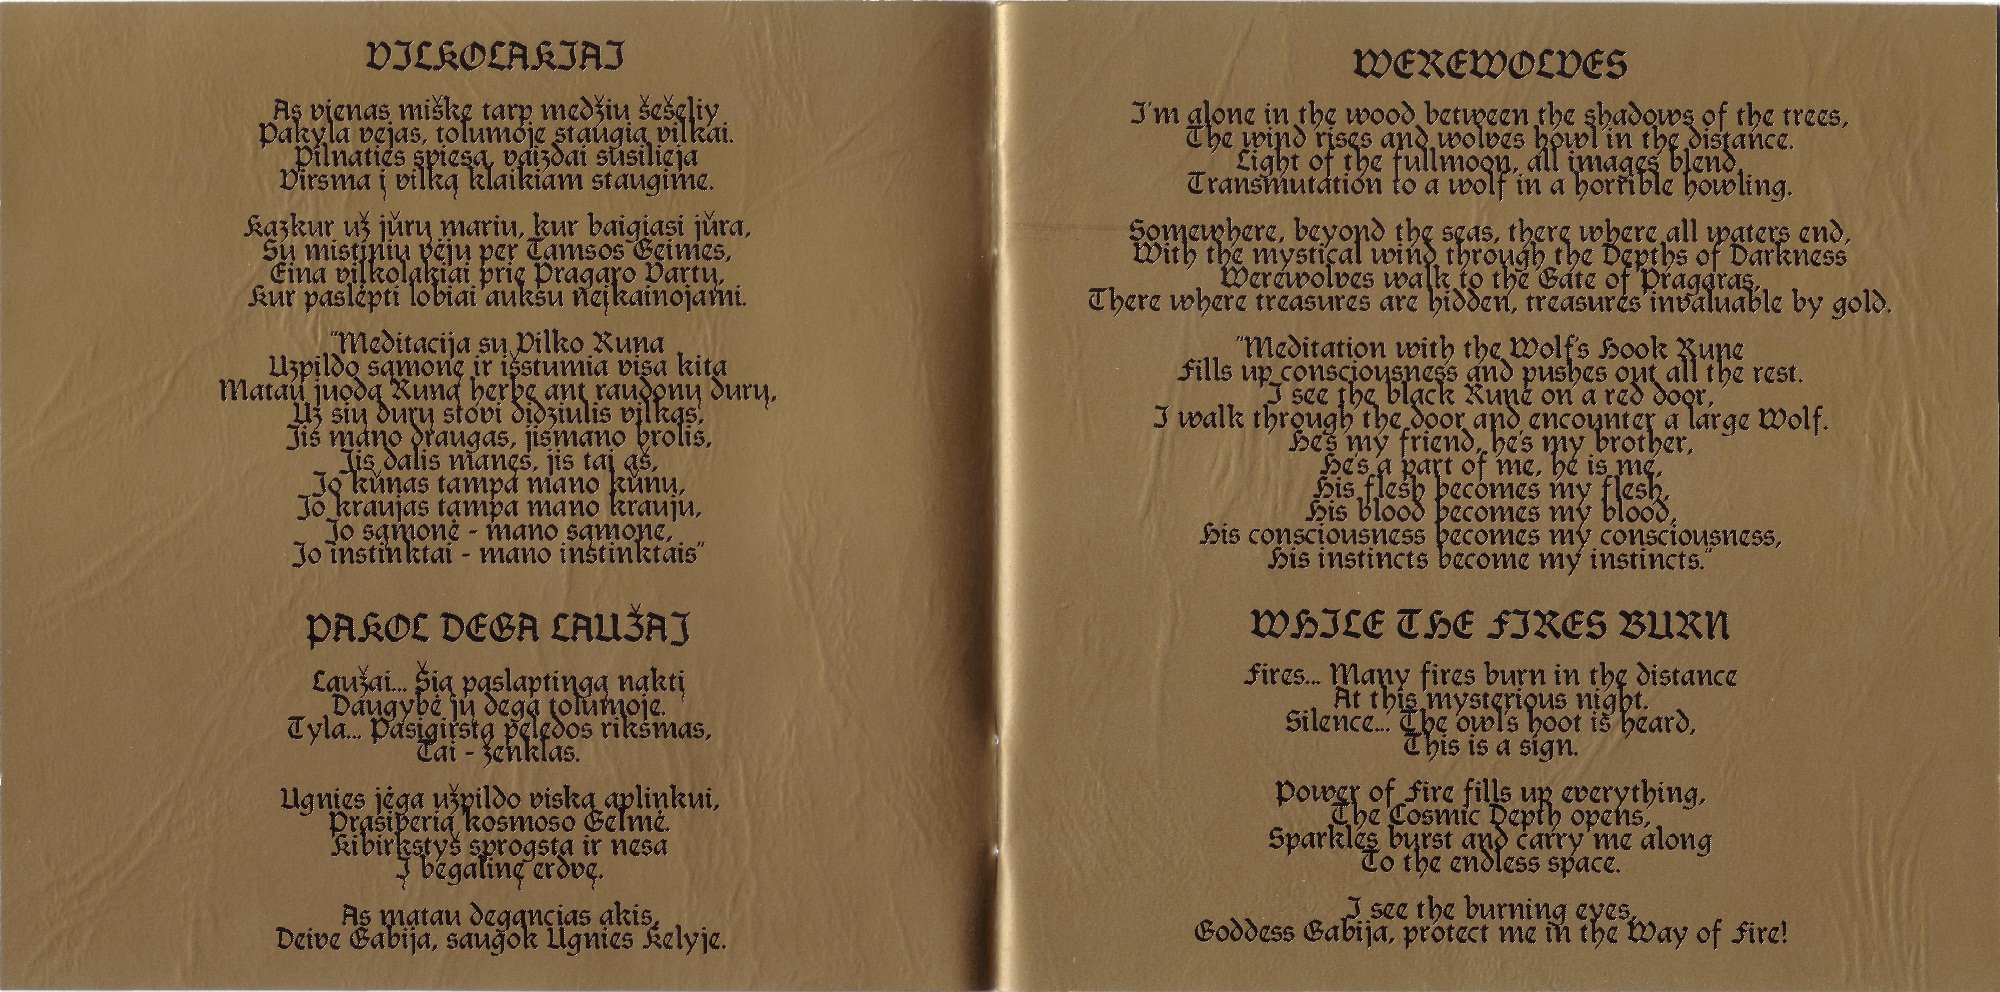 VILKOLAKIAI
As vienas miške tarp medžiu šešeliy
Pakyla vejas, tolumoje staugia vilkai.
Pilnaties sviesa, vaizdai susilieja
Virsma į vilką klaikiam staugime.
Kazkur už jūru mariu, kur baigiasi jūra,
Su mistiniu vėju per Tamsos Gelmes,
Eina vilkolakiai prie Pragaro Vartų,
Kur paslėpti lobiai auksu neįkainojami.
"Meditacija su Vilko Runa
Uzpildo sąmonę ir išstumia visa kita
Matau juodą Runą herbe ant raudonų durų,
Už siu durų stovi didziulis vilkas,
Jis mano draugas, jismano brolis,
Jis dalis manęs, jis tai aš,
Jo kūnas tampa mano kūnu,
Jo kraujas tampa mano krauju,
Jo sąmonė - mano sąmone,
Jo instinktai - mano instinktais"
PAKOL DEGA LAUŽAI
Laužai... Šią paslaptingą naktį
Daugybė jų dega tolumoje.
Tyla... Pasigirsta pelėdos riksmas,
Tai - ženklas.
Ugnies jėga užpildo viską aplinkui,
Prasiveria kosmoso Gelmė.
Kibirkstys sprogsta ir nesa
Į begalinę erdvę.
As matau degancias akis,
Deive Gabija, saugok Ugnies Kelyje.
WEREWOLVES
I'm alone in the wood between the shadows of the trees,
The wind rises and wolves howl in the distance.
Light of the fullmoon, all images blend,
Transmutation to a wolf in a horrible howling.
Somewhere, beyond the seas, there where all waters end,
With the mystical wind through the Depths of Darkness
Werewolves walk to the Gate of Pragaras,
There where treasures are hidden, treasures invaluable by gold.
"Meditation with the Wolf's Hook Rune
Fills up consciousness and pushes out all the rest.
I see the black Rune on a red door,
I walk through the door and encounter a large Wolf.
He's my friend, he's my brother,
He's a part of me, he is me,
His flesh becomes my flesh,
His blood becomes my blood,
His consciousness becomes my consciousness,
His instincts become my instincts."
WHILE THE FIRES BURN
Fires... Many fires burn in the distance
At this mysterious night.
Silence... The owl's hoot is heard,
This is a sign.
Power of Fire fills up everything,
The Cosmic Depth opens,
Sparkles burst and carry me along
To the endless space.
I see the burning eyes,
Goddess Gabija, protect me in the Way of Fire!